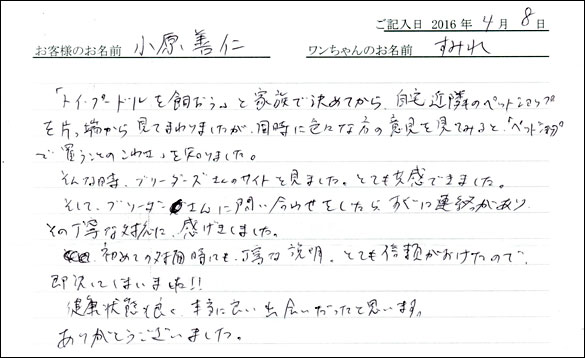 ご記入日 2016年 4月 8日
お客様のお名前 小原 善仁 ワンちゃんのお名前 すみれ
「トイ・プードルを飼おう」と家族で決めてから、自宅近隣のペットショップ
を片っ端から見てまわりましたが、同時に色々な方の意見を見てみると、「ペットショップ
で買うことのこわさ」を知りました。
そんな時、ブリーダーズさんのサイトを見ました。とても好感できました。
そして、ブリーダーさんに問い合わせをしたら、すぐに連絡があり、
その丁寧な対応に、感げきしました。
初めての対面時にも、丁寧な説明、とても信頼がおけたので、
即決してしまいました!!
健康状態も良く、本当に良い出会いだったと思います。
ありがとうございました。